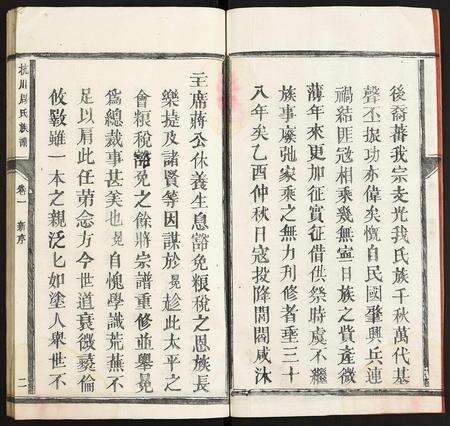 後裔蕃我宗支光我氏族千秋萬代基
磬丕振功亦偉矣慨自民國肇興兵連
禍結匪寇相乘幾無寧日族之貲產微
薄年來更加征實征借供祭時虞不繼
族事廢弛家乘之無力刋修者垂三十
八年矣乙酉仲秋日寇投降閭閻咸沐
主席蔣公休養生息豁免粮稅之恩族長
樂捷及諸賢等因謀於晃趁此太平之
會粮稅豁免之餘將宗譜重修並舉晃
為總裁事甚美也晃自愧學識荒蕪不
足以肩此任第念方今世道衰微彞倫
攸斁雖一本之親泛匕如塗人舉世不
杭川周氏族譜
卷一
新序
二